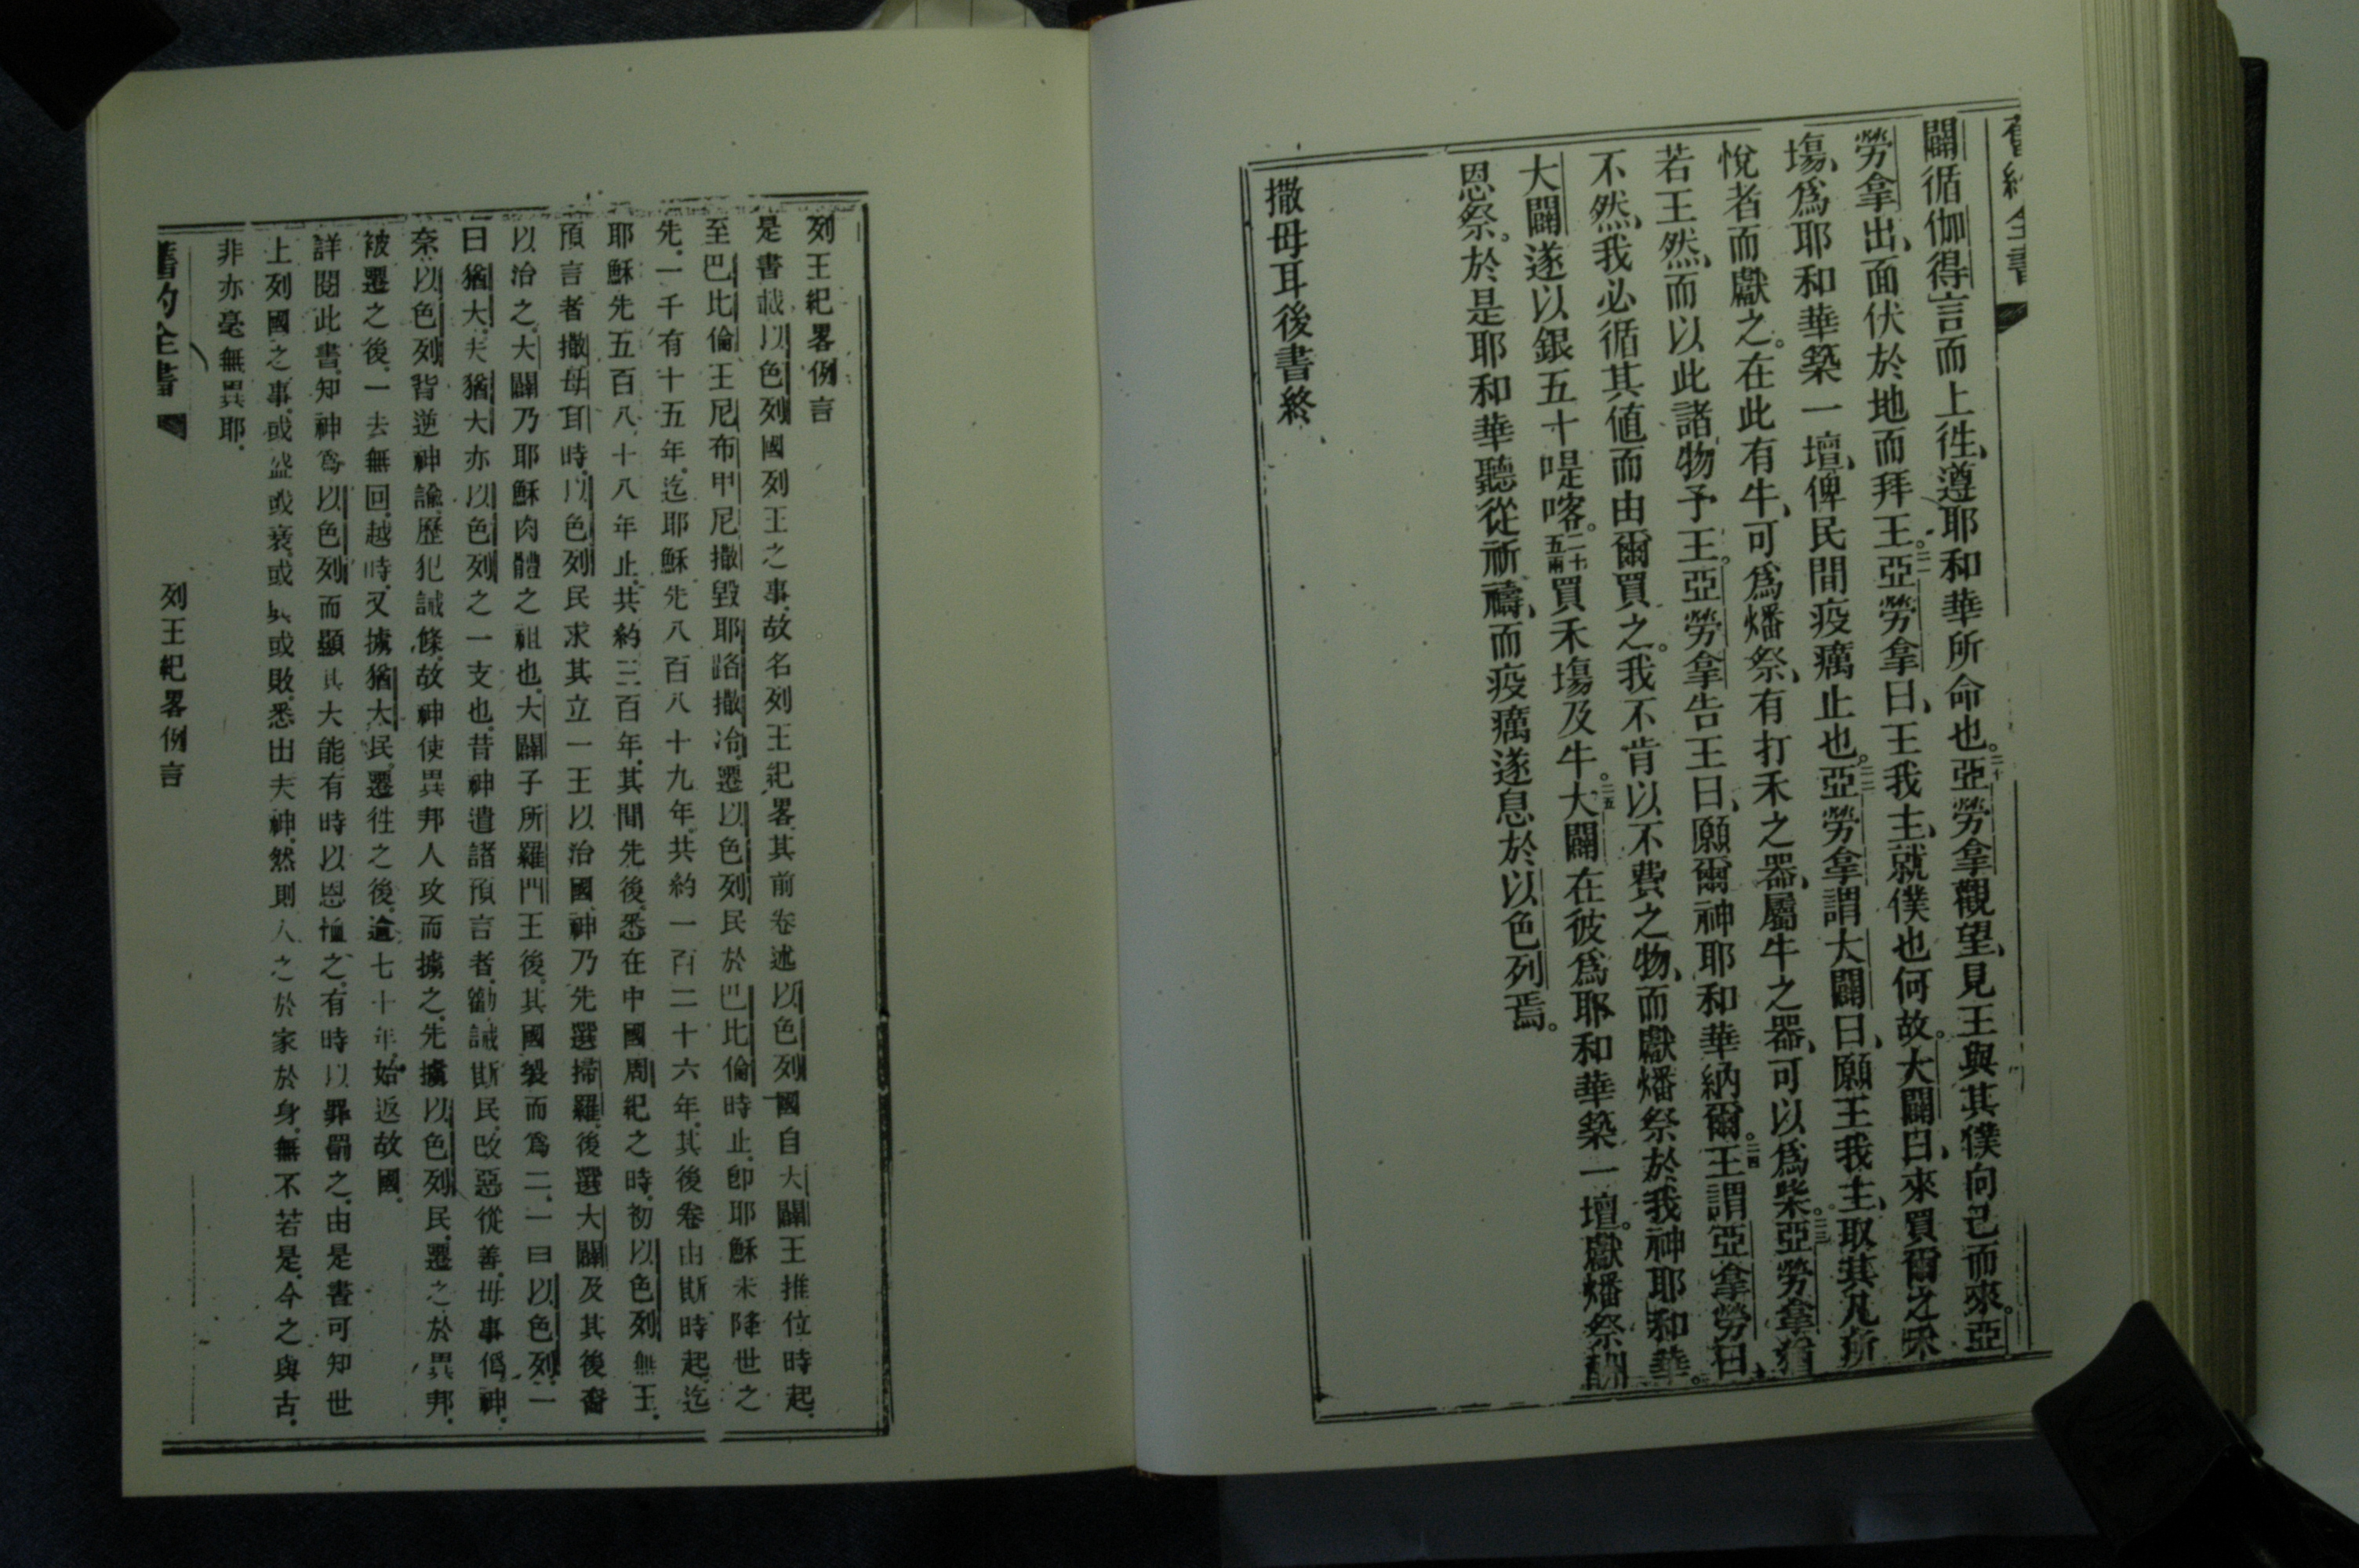 舊約全書
闢循伽得言而上徃、遵耶和華所命也。二十亞勞拿觀望、見王與其僕向己而來。亞
勞拿出、面伏於地而拜王。二一亞勞拿曰、王我主、就僕也何故。大闢曰、來買爾之禾
塲、爲耶和華築一壇、俾民間疫癘止也。二二亞勞拿謂大闢曰、願王我主、取其凡所
悅者而獻之。在此有牛、可爲燔祭、有打禾之器、屬牛之器、可以爲柴。二三亞勞拿猶
若王然、而以此諸物予王。亞勞拿告王曰、願爾神耶和華納爾。二四王謂亞拿勞曰、
不然、我必循其値而由爾買之。我不肯以不費之物、而獻燔祭於我神耶和華。
大闢遂以銀五十喼喀。二十五兩買禾塲及牛。二五大闢在彼爲耶和華築一壇。獻燔祭酬
恩祭。於是耶和華聽從祈禱、而疫癘遂息於以色列焉。
撒母耳後書終
列王紀畧例言
是書載以色列國列王之事、故名列王紀畧、其前卷述以色列國自大闢王推位時起、
至巴比倫王尼布甲尼撒毀耶路撒冷、遷以色列民於巴比倫時止、卽耶穌未降世之
先、一千有十五年、迄耶穌先八百八十九年、共約一百二十六年、其後卷由斯時起、迄
耶穌先五百八十八年止、共約三百年、其間先後、悉在中國周紀之時、初以色列無王、
預言者撒母耳時、以色列民求其立一王以治國、神乃先選掃羅、後選大闢及其後裔
以治之、大闢乃耶穌肉體之祖也、大闢子所羅門王後、其國製而爲二、一曰以色列、一
曰猶大、夫猶大亦以色列之一支也、昔神遣諸預言者、勸誡斯民、改惡從善、毋事僞神、
奈以色列背逆神諭、歷犯誡條、故神使異邦人攻而擄之、先擄以色列民、遷之於異邦、
被遷之後、一去無回、越時、又擄猶大民、遷徃之後、逾七十年、始返故國、
詳閱此書、知神爲以色列而顯其大能、有時以恩恤之、有時以罪罰之、由是書可知世
上列國之事、或盛或衰、或興或敗、悉出夫神、然則人之於家於身、無不若是、今之與古、
非亦毫無異耶、
舊約全書
列王紀畧例言